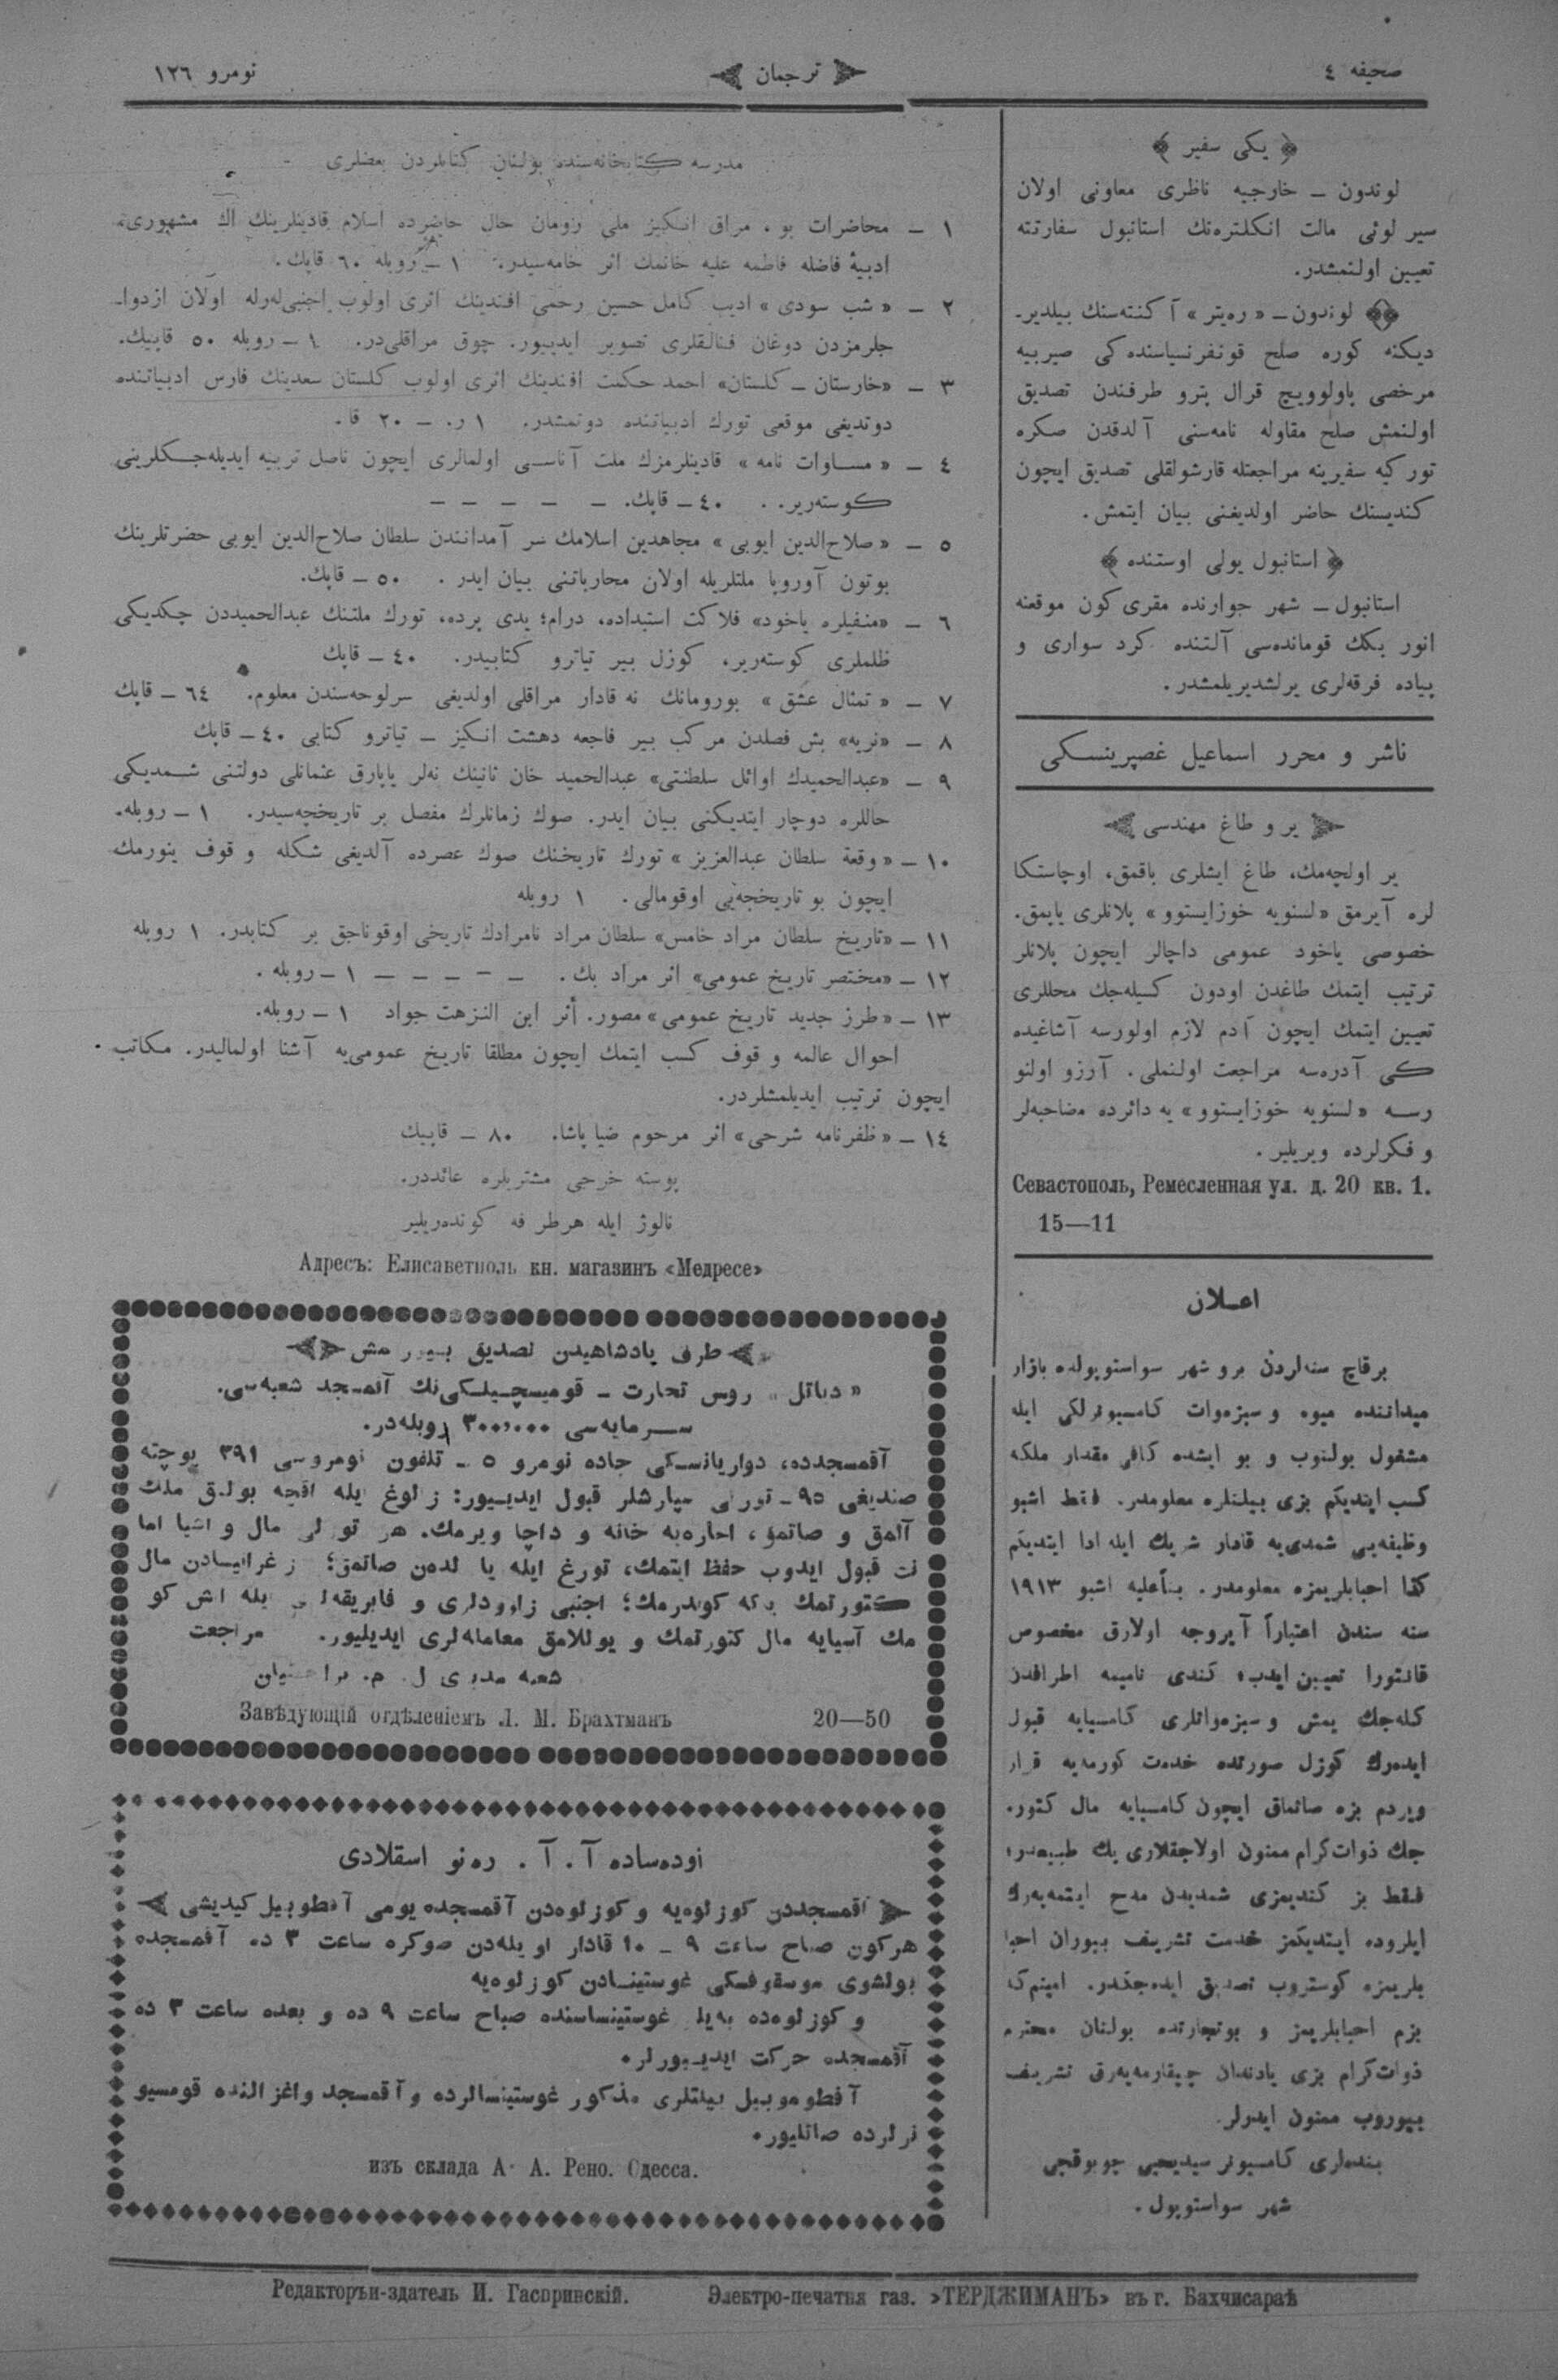 صحيفه ٤
ترجمان
نومرو ١٢٦
يكى سفير
لوندون ـ خارجيه ناظرى معاونى اولان
سير لوئى مالت انكلتره‌نك استانبول سفارتنه
تعيين اولنمشدر.
لوندون ـ « ره‌يتر » آكنته‌سنك بيلدير-
ديكنه كوره صلح قونفرنسياسنده‌كى صيربيه
مرخصى پاولوويچ قرال پترو طرفندن تصديق
اولنمش صلح مقاوله نامه‌سنى آلدقدن صكره
توركيه سفيرينه مراجعتله قارشولقلى تصديق ايچون
كنديسنك حاضر اولديغنى بيان ايتمش.
استانبول يولى اوستنده
استانبول ـ شهر جوارنده مقرى كون موقعنه
انور بكك قومانده‌سى آلتنده كرد سوارى و
پياده فرقه‌لرى يرلشديريلمشدر.
ناشر و محرر اسماعيل غصپرينسكى
ير و طاغ مهندسى
ير اولچه‌مك، طاغ ايشلرى باقمق، اوچاستكا
لره آيرمق «لسنويه خوزايستوو» پلانلرى ياپمق.
خصوصى ياخود عمومى داچالر ايچون پلانلر
ترتيب ايتمك طاغدن اودون كسيله‌جك محللرى
تعيين ايتمك ايچون آدم لازم اولورسه آشاغيده
كى آدره‌سه مراجعت اولنملى. آرزو اولنو
رسه «لسنويه خوزايستوو» يه دائرده مصاحبه‌لر
و فكرلرده ويريلير.
Севастополь, Ремесленная ул. д. 20 кв. 1.
15—11
اعلان
برقاچ سنه‌لردن برو شهر سواستوپولده بازار
ميداننده ميوه و سبزه‌وات كامسيونرلكى ايله
مشغول بولنوب و بو ايشده كافى مقدار ملكه
كسب ايتديكم بزى بيلنلره معلومدر. فقط اشبو
وظيفه‌يى شمدى‌يه قادار شريك ايله ادا ايتديكم
كذا احبابلريمزه معلومدر. بناًعليه اشبو ١٩١٣
سنه سندن اعتباراً آيروجه اولارق مخصوص
قانتورا تعيين ايدب، كندى ناميمه اطرافدن
كله‌جك يمش و سبزه‌واتلرى كامسيايه قبول
ايده‌رك كوزل صورتده خدمت كورمه‌يه قرار
ويردم بزه صاتماق ايچون كامسيايه مال كتوره
جك ذوات كرام ممنون اولاجقلارى پك طبيعيدر،
فقط بز كنديمزى شمديدن مدح ايتمه‌يه‌رك
ايلروده ايتديكمز خدمت تشريف بيوران احبا
بلريمزه كوستروب تصديق ايده‌جكدر. امينم‌كه
بزم احبابلريمز و بوتجارتده بولنان محترم
ذوات كرام بزى يادندان چيقارمه‌يه‌رق تشريف
بيوروب ممنون ايدرلر.
بنده‌لرى كامسيونر سيديحيى چوبوقچى
شهر سواستوپول.
مدرسه كتابخانه‌سنده بولنان كتابلردن بعضلرى
١ ـ محاضرات بو، مراق انكيز ملى رومان حال حاضرده اسلام قادينلرينك اك مشهورى،
اديبهٔ فاضله فاطمه عليه خانمك اثر خامه‌سيدر. ١ ـ روبله ٦٠ قاپك.
٢ ـ « شب سودى » اديب كامل حسين رحمى افندينك اثرى اولوب اجنبى‌لرله اولان ازدوا-
جلرمزدن دوغان فنالقلرى تصوير ايدييور. چوق مراقلى‌در. ١ ـ روبله ٥٠ قاپيك.
٣ ـ «خارستان ـ كلستان» احمد حكمت افندينك اثرى اولوب كلستان سعدينك فارس ادبياتنده
دوتديغى موقعى تورك ادبياتنده دوتمشدر. ١ ر. ـ ٢٠ قا.
٤ ـ « مساوات نامه » قادينلرمزك ملت آناسى اولمالرى ايچون ناصل تربيه ايديله‌جكلرينى
كوسته‌رير. . ٤٠ ـ قاپك. ـ ـ ـ ـ ـ
٥ ـ « صلاح‌الدين ايوبى » مجاهدين اسلامك سر آمدانندن سلطان صلاح‌الدين ايوبى حضرتلرينك
بوتون آوروپا ملتلريله اولان محارباتنى بيان ايدر. ٥٠ ـ قاپك.
٦ ـ «منفيلره ياخود» فلاكت استبداده، درام؛ يدى پرده، تورك ملتنك عبدالحميددن چكديكى
ظلملرى كوسته‌رير، كوزل بير تياترو كتابيدر. ٤٠ ـ قاپك
٧ ـ « تمثال عشق » بورومانك نه قادار مراقلى اولديغى سرلوحه‌سندن معلوم. ٦٤ ـ قاپك
٨ ـ «نريه» بش فصلدن مركب بير فاجعه دهشت انكيز ـ تياترو كتابى ٤٠ ـ قاپك
٩ ـ «عبدالحميدك اوائل سلطنتى» عبدالحميد خان ثانينك نه‌لر ياپارق عثمانلى دولتنى شمديكى
حاللره دوچار ايتديكنى بيان ايدر. صوك زمانلرك مفصل بر تاريخچه‌سيدر. ١ ـ روبله.
١٠ ـ « وقعهٔ سلطان عبدالعزيز » تورك تاريخنك صوك عصرده آلديغى شكله و قوف ينورمك
ايچون بو تاريخجه‌يى اوقومالى. ١ روبله
١١ ـ «تاريخ سلطان مراد خامس» سلطان مراد نامرادك تاريخى اوقوناجق بر كتابدر. ١ روبله
١٢ ـ «مختصر تاريخ عمومى» اثر مراد بك. ـ ـ ـ ـ ـ ١ ـ روبله.
١٣ ـ «طرز جديد تاريخ عمومى» مصور. أثر ابن النزهت جواد ١ ـ روبله.
احوال عالمه و قوف كسب ايتمك ايچون مطلقا تاريخ عمومى‌يه آشنا اولماليدر. مكاتب
ايچون ترتيب ايديلمشلردر.
١٤ ـ « ظفرنامه شرحى» اثر مرحوم ضيا پاشا. ٨٠ ـ قاپيك
پوسته خرجى مشتريلره عائددر.
نالوژ ايله هرطرفه كونده‌ريلير
Адресъ: Елисаветполь кн. магазинъ «Медресе»
طرف پادشاهيدن تصديق
روس تجارت ـ قوميسچيلكى‌نك آقمسجد شعبه‌سى.
سرمايه‌سى ٣٠٠،٠٠٠ روبله‌در.
آقمسجدده، دواريانسكى جاده نومرو ٥ ـ تلفون نومروسى ٣٩١ پوچته
صنديغى ٩٥ ـ سپارشلر قبول ايدييور: آقچه بولق ملك
آلمق و صاتمق، اجاره‌يه خانه و داچا ويرمك. هر مال و اشيا اما
نت قبول ايدوب حفظ ايتمك، تورغ ايله يا صاتمق؛ مال
كتورتمك كوندرمك؛ اجنبى زاوودلرى و فابريقه‌لر ايله
مك آسيايه مال كتورتمك و يوللامق معامله‌لرى ايديليور. مراجعت
شعبه مديرى ل. م.
Завѣдующій отдѣленіемъ Л. М. Брахтманъ 20—50
اوده‌ساده آ. آ. ره‌نو اسقلادى
آقمسجددن كوزلوه‌يه و كوزلوه‌دن آقمسجده يومى آفطوبيل كيديشى
هركون صباح ساعت ٩ ـ ١٠ قادار اويله‌دن صوكره ساعت ٣ ده آقمسجده
بولشوى موسقوفسكى غوستينسادن كوزلوه‌يه
و كوزلوه‌ده غوستينساسنده صباح ساعت ٩ ده و بعده ساعت ٣ ده
آقمسجده حركت ايدييورلر.
آفطوموبيل بيلتلرى مذكور غوستينسالرده و آقمسجد واغزالنده قومسيو
نرلرده صاتليور.
изъ склада А. А. Рено. Одесса.
Редакторъи-здатель И. Гаспринскій. Электро-печатня газ. »ТЕРДЖИМАНЪ» въ г. Бахчисараѣ